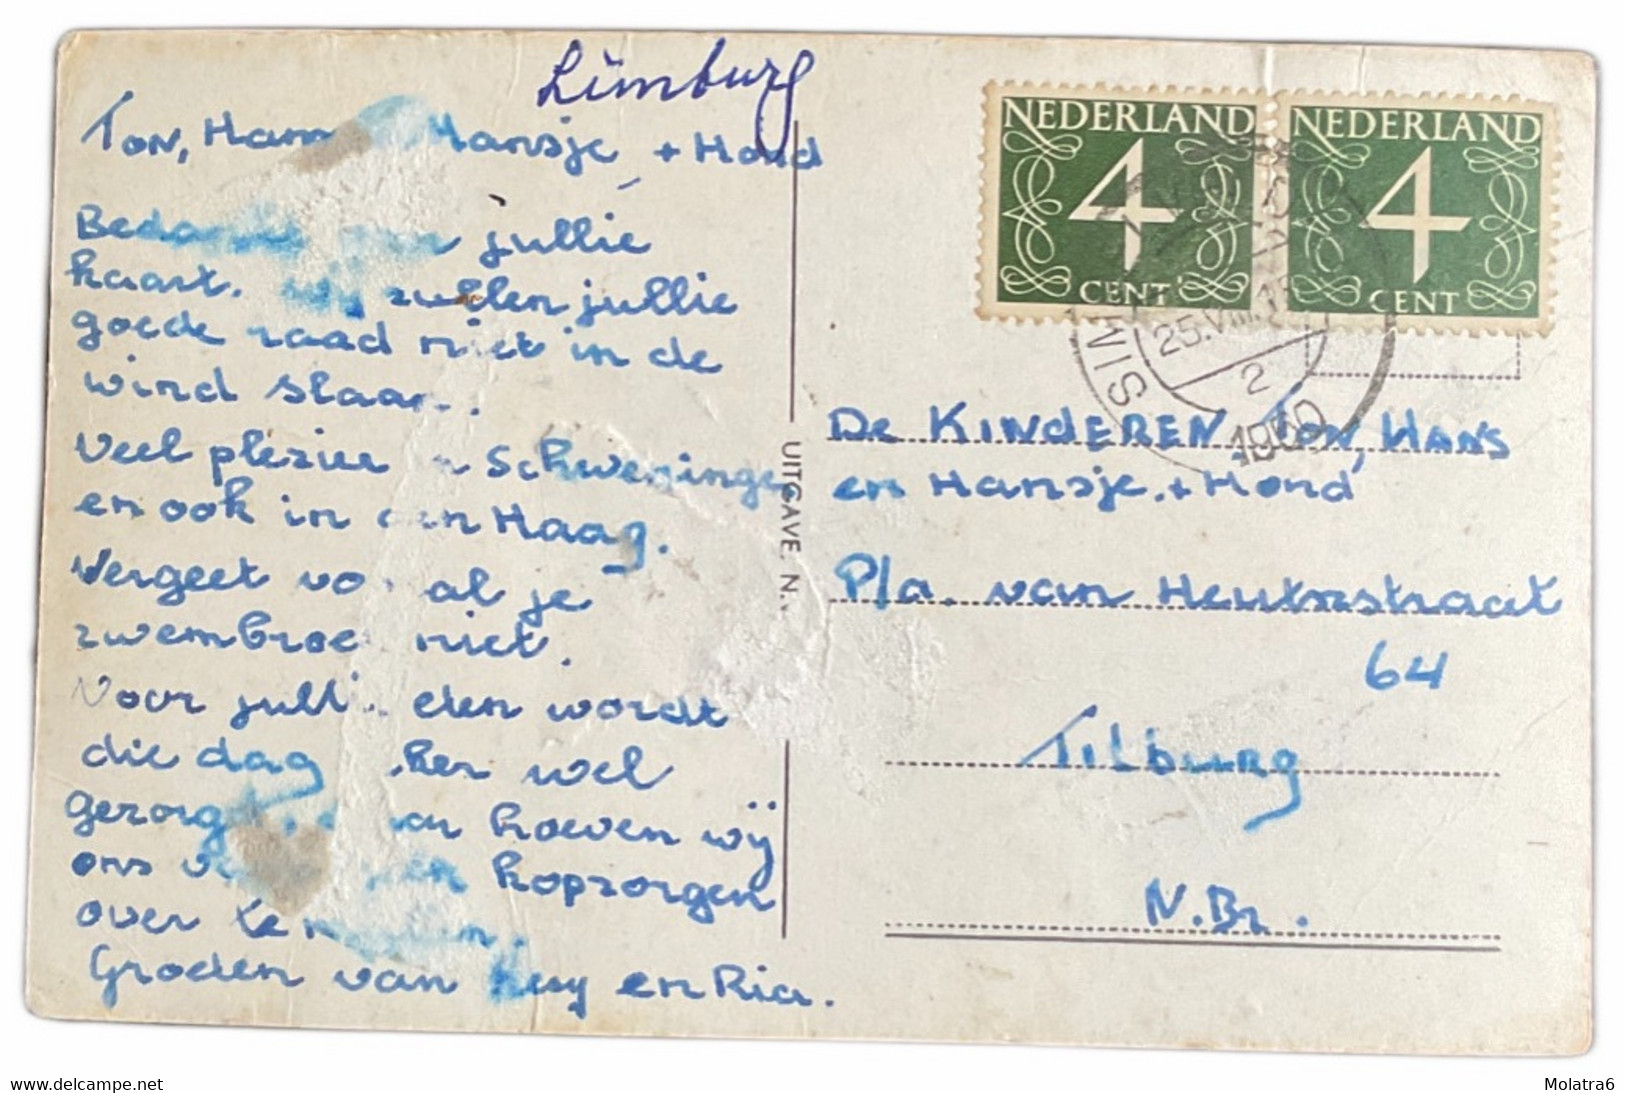 Limburg
Ton, Hans Hansje + Hond
Bedankt voor jullie
kaart. Wij zullen jullie
goede raad niet in de
wind slaan.
Veel plezier in Scheveningen
en ook in den Haag.
Vergeet vooral je
zwembroek niet.
Voor jullie eten wordt
die dag zeker wel
gezorgd, daar hoeven wij
ons verder geen kopzorgen
over te maken.
Groeten van en Ria.
UITGAVE N.
NEDERLAND
4
CENT
NEDERLAND
4
CENT
SIMVIS
25.VIII.
2
1960
De KINDEREN Ton, HANS
en Hansje, + Hond
P/a. van Heutszstraat
64
Tilburg
N.Br.
www.delcampe.net
Molatra6